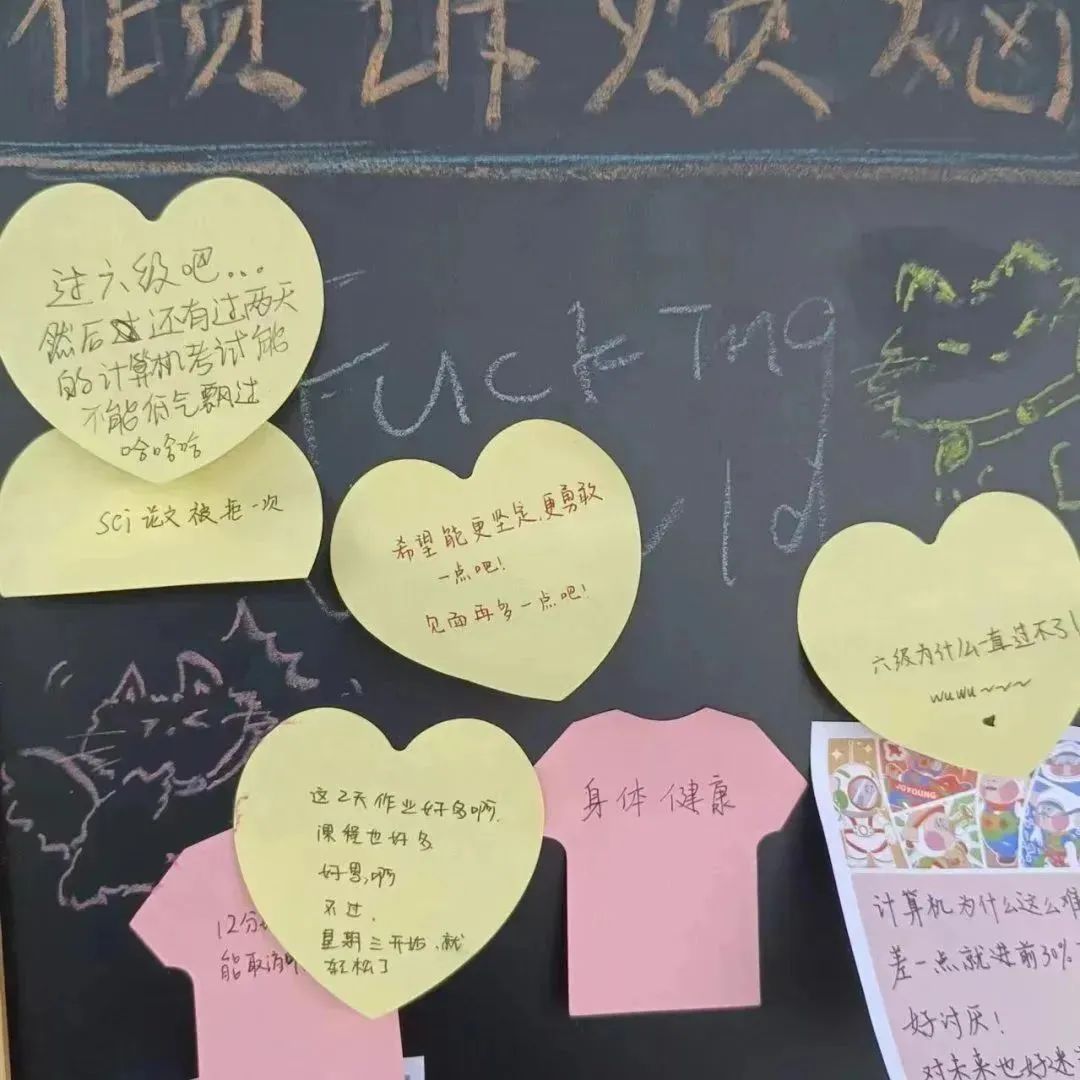 倾诉烦恼
过六级吧...
然后还有过两天
的计算机考试能
不能低气飘过
哈哈哈
sci论文被拒一次
Fuck Ting
ld
希望能更坚定,更勇敢
一点吧!
见面再多一点吧!
六级为什么一直过不了!
wuwu~~~
这2天作业好多啊.
课程也好多
好累啊
不过,
星期三开始,就
轻松了
12分
能取消
身体健康
JOYOUNG
计算机为什么这么难
差一点就进前30%
好讨厌!
对未来也好迷